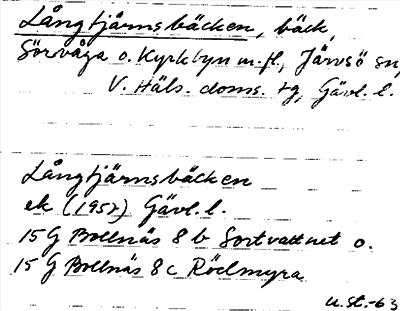 Långtjärnsbäcken, bäck,
Sörvåga o. Kyrkbyn m.fl., Järvsö sn,
V. Häls. doms. tg, Gävl. l.
Långtjärnsbäcken
ek (1957) Gävl. l.
15 G Bollnäs 8 b Sortvattnet o.
15 G Bollnäs 8 c Rödmyra
u.st.-63